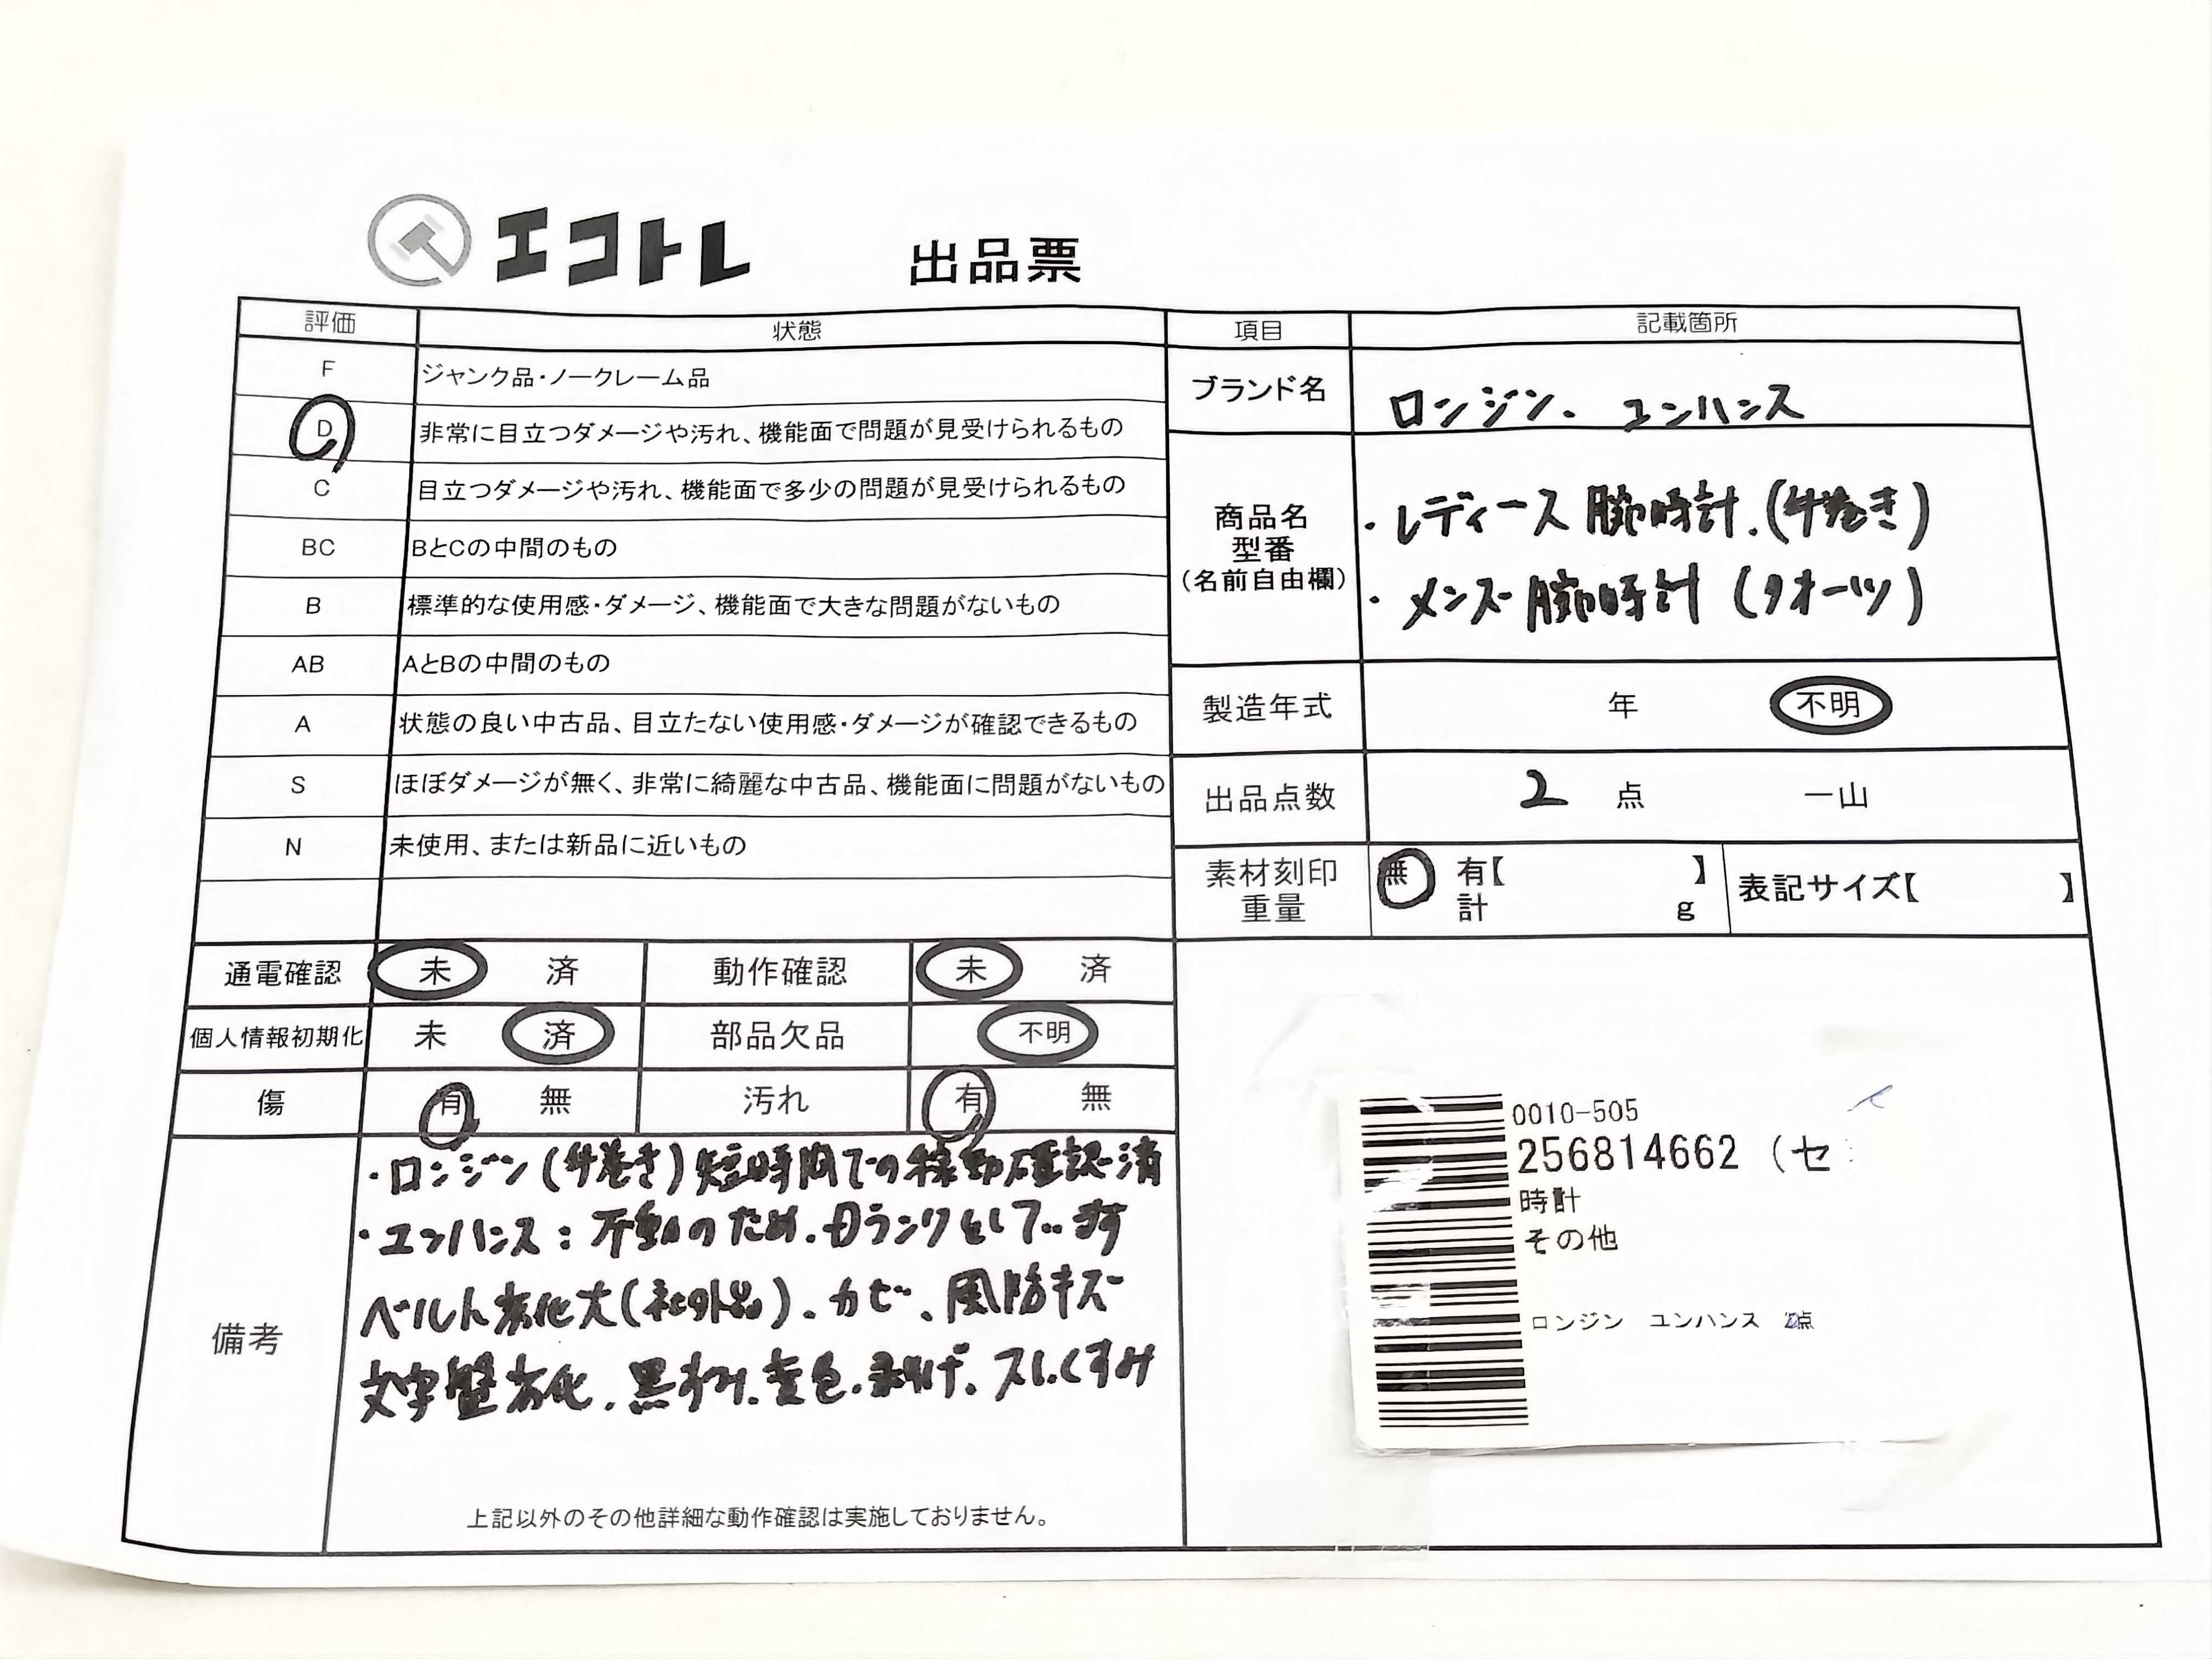 エコトレ 出品票
評価 状態 項目 記載箇所
F ジャンク品・ノークレーム品
D 非常に目立つダメージや汚れ、機能面で問題が見受けられるもの
C 目立つダメージや汚れ、機能面で多少の問題が見受けられるもの
BC BとCの中間のもの
B 標準的な使用感・ダメージ、機能面で大きな問題がないもの
AB AとBの中間のもの
A 状態の良い中古品、目立たない使用感・ダメージが確認できるもの
S ほぼダメージが無く、非常に綺麗な中古品、機能面に問題がないもの
N 未使用、または新品に近いもの
ブランド名 ロンジン. ユンハンス
商品名
型番
(名前自由欄)
・レディース腕時計.(手巻き)
・メンズ腕時計(クオーツ)
製造年式 年 不明
出品点数 2 点 一山
素材刻印
重量
無 有【 】
計 g
表記サイズ【 】
通電確認 未 済 動作確認 未 済
個人情報初期化 未 済 部品欠品 不明
傷 有 無 汚れ 有 無
備考
・ロンジン(手巻き)短時間での稼動確認済
・ユンハンス:不動のため.Dランクとしてます
ベルト劣化大(社外品).カビ、風防キズ
文字盤劣化.黒ずみ.変色.剥げ.スレくすみ
上記以外のその他詳細な動作確認は実施しておりません。
0010-505
256814662 (セ
時計
その他
ロンジン ユンハンス 2点